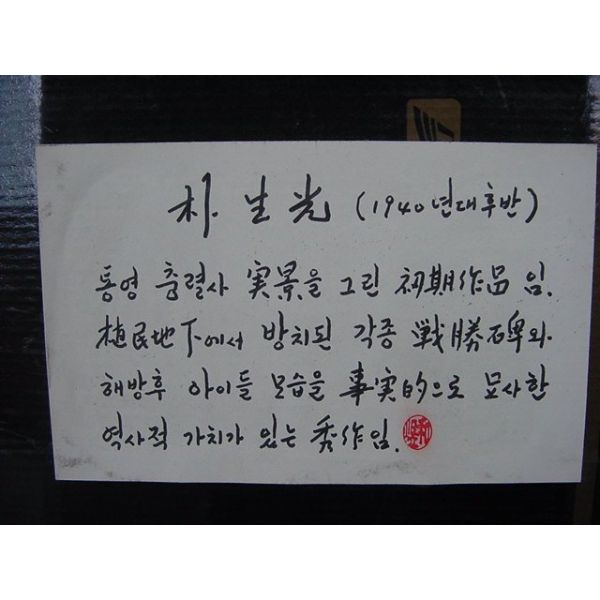 朴生光 (1940년대후반)
통영 충렬사 実景을 그린 初期作品 임.
植民地下에서 방치된 각종 戦勝碑와
해방후 아이들 모습을 事実的으로 묘사한
역사적 가치가 있는 秀作임.